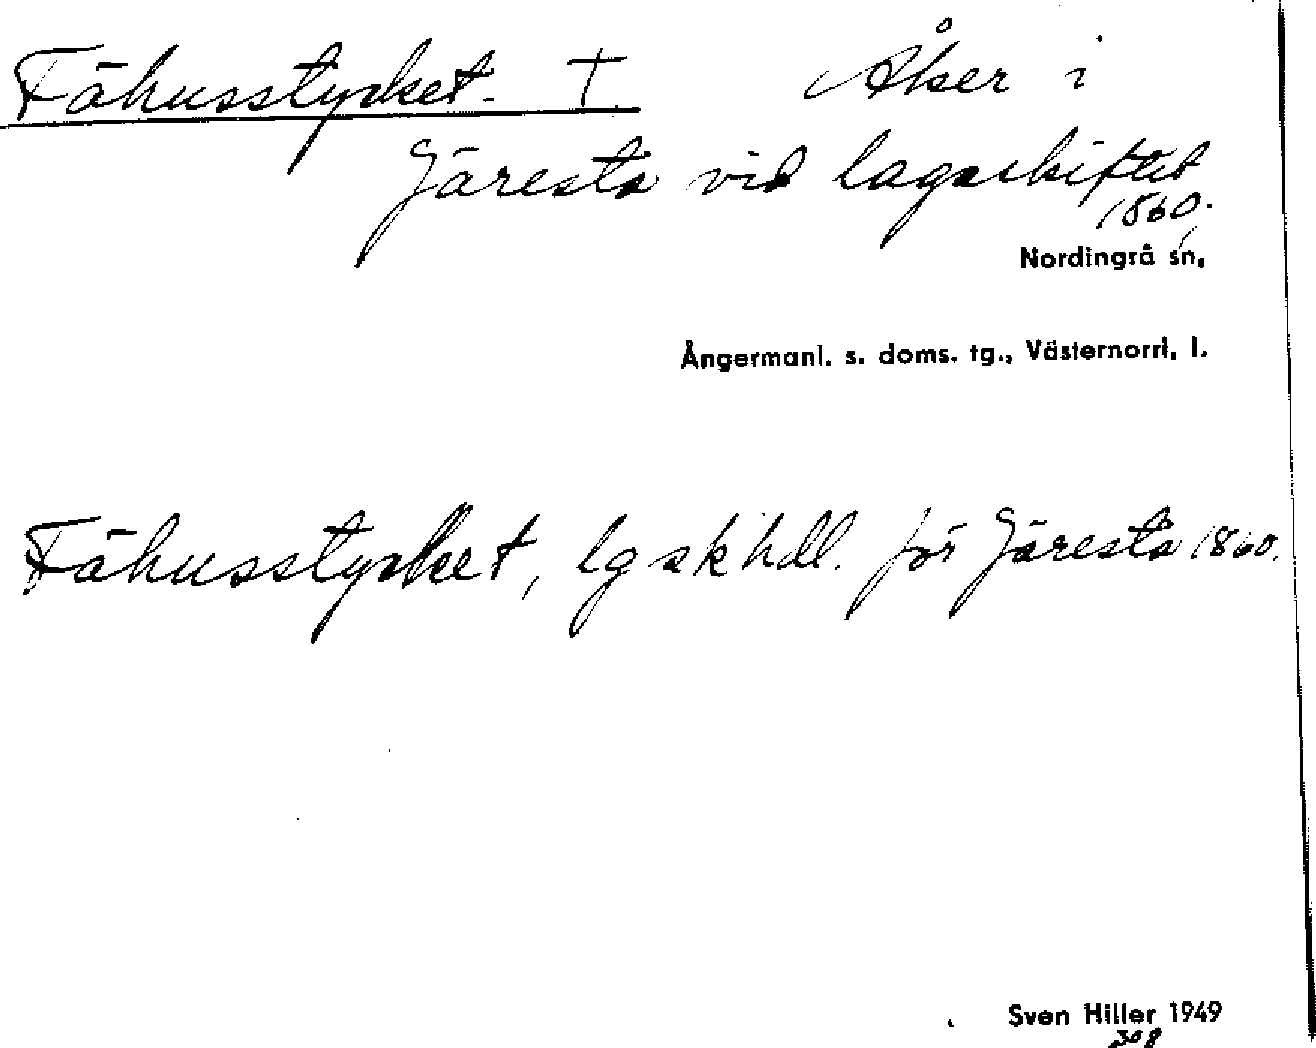 Fähusstycket. † Åker i
Järesta vid lagaskiftet
1860.
Nordingrå sn,
Ångermanl. s. doms. tg., Västernorrl. l.
Fähusstycket, lgskhdl. för Järesta 1860.
Sven Hiller 1949
308